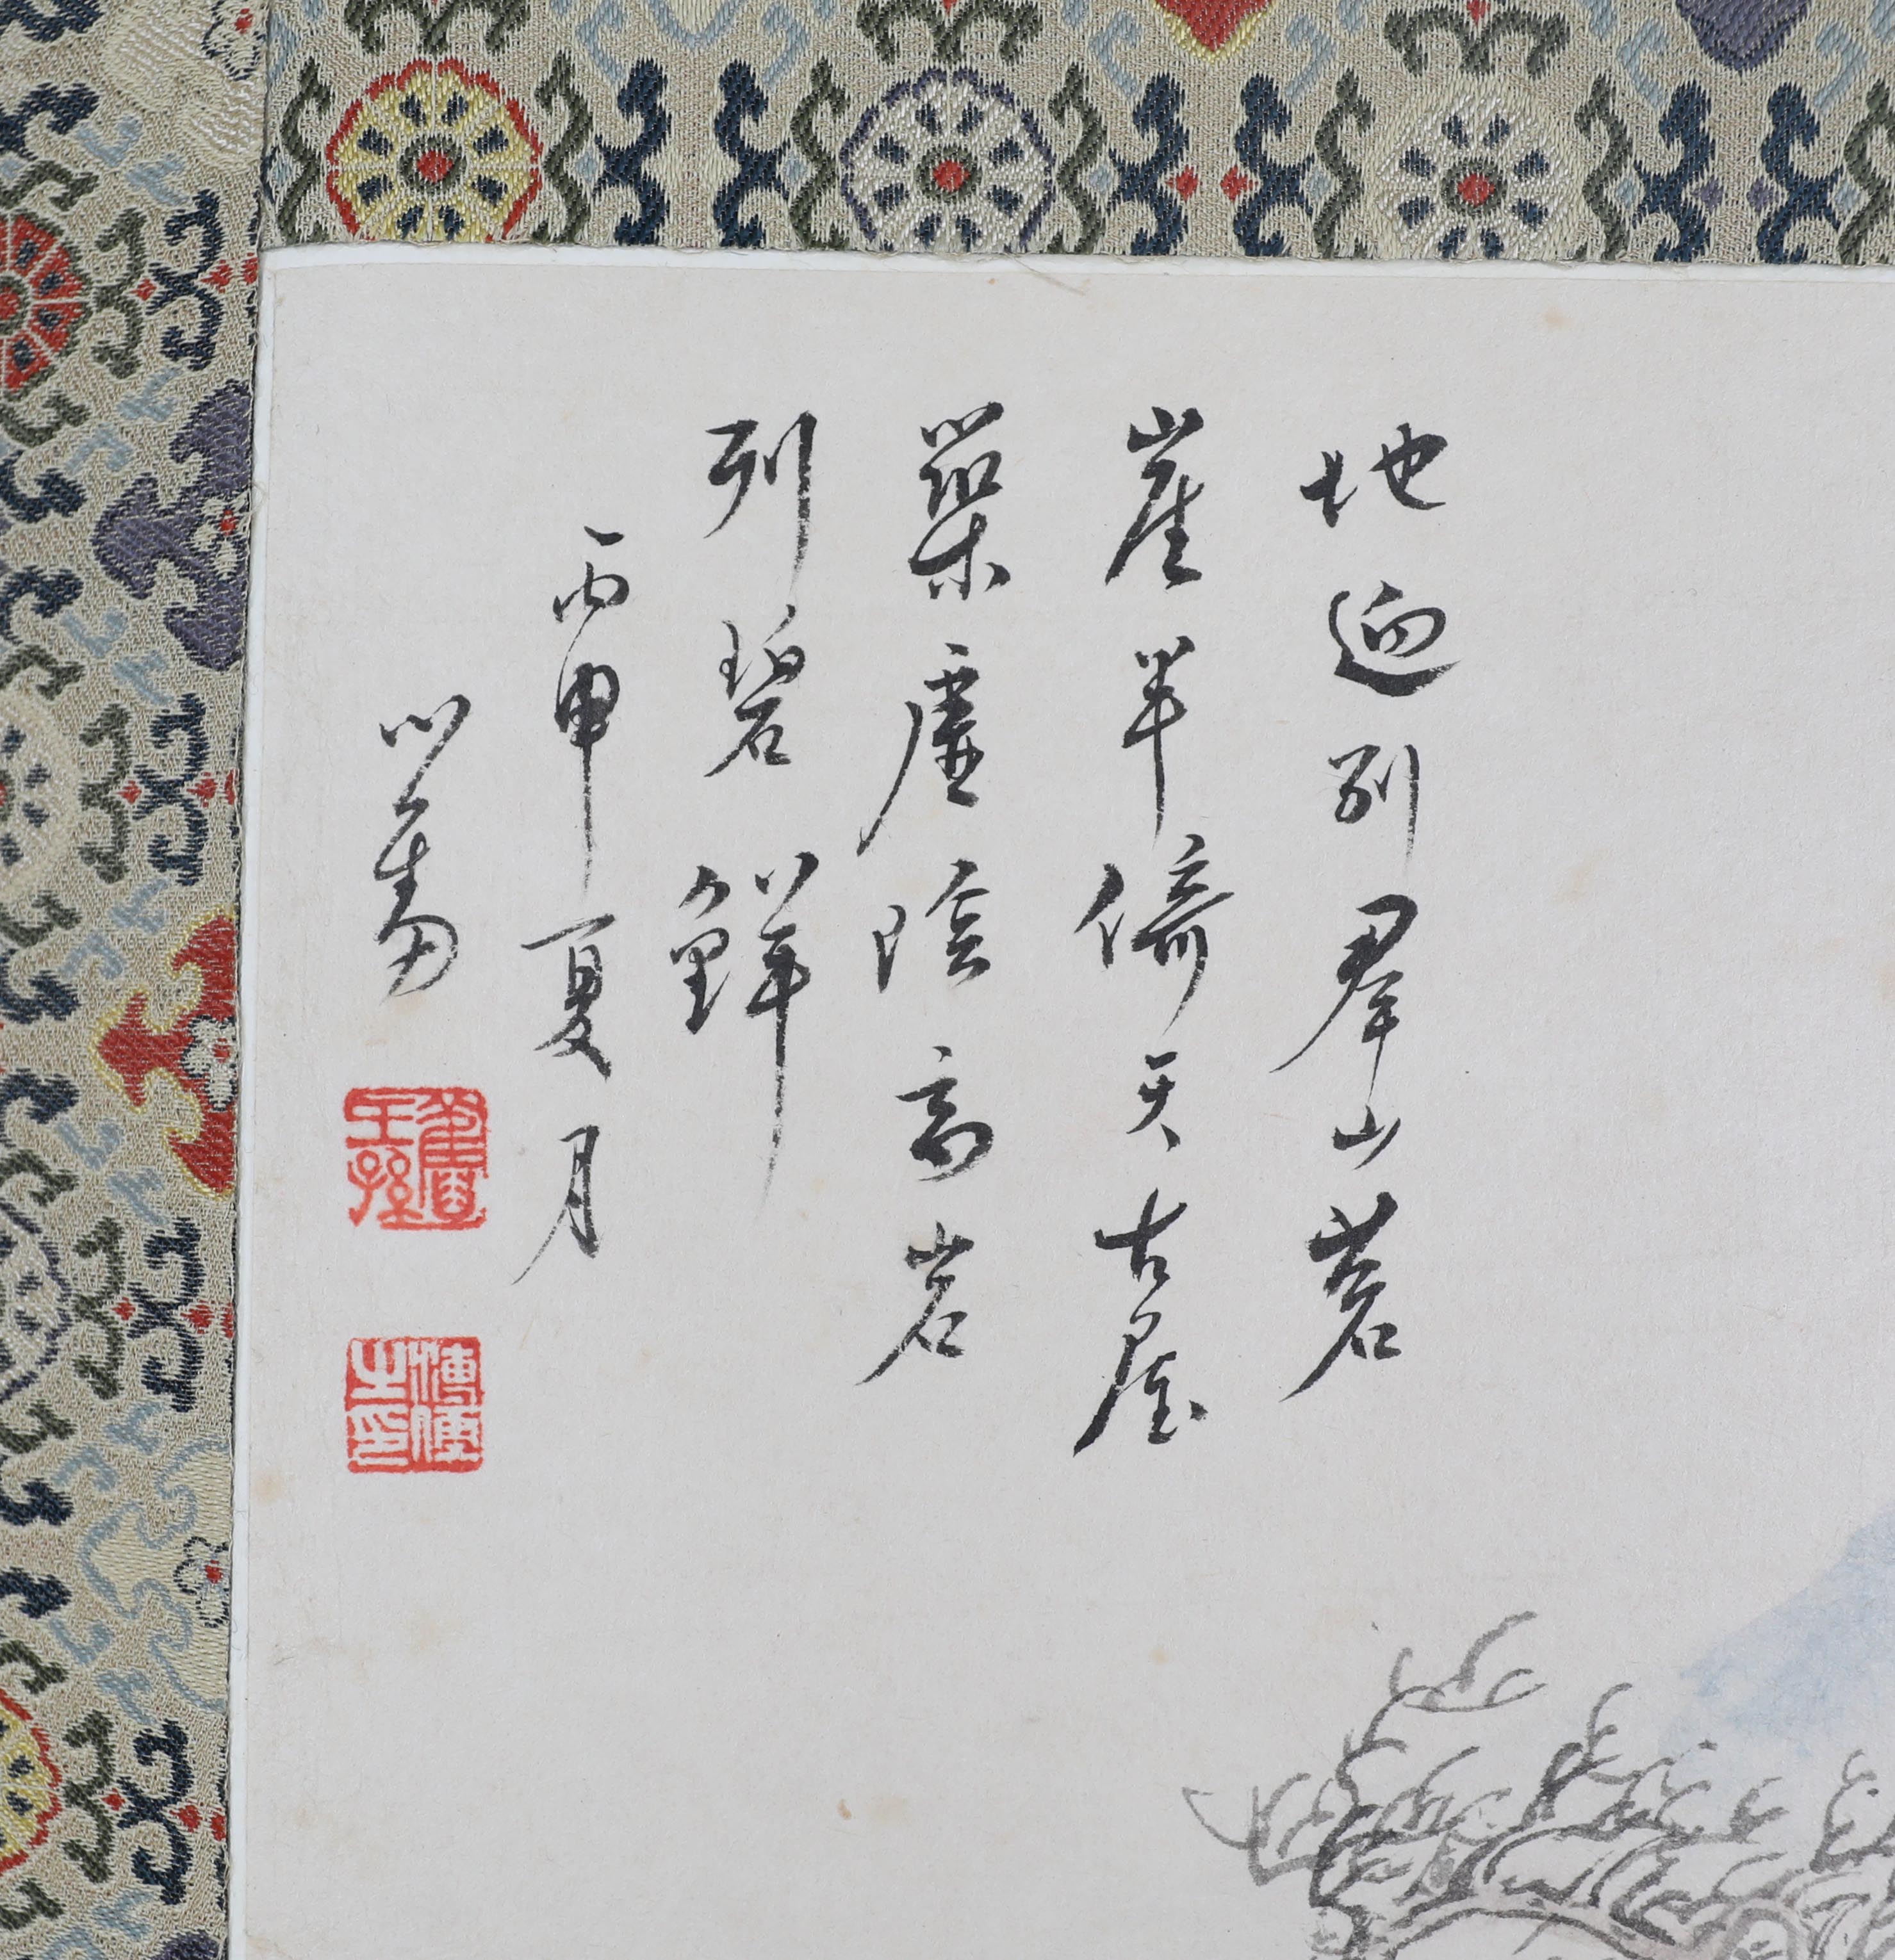 地迥別羣山蒼
崖半倚天古屋
築虛陰高岩
列碧鮮
丙申夏月
心畬
舊王孫
溥儒之印